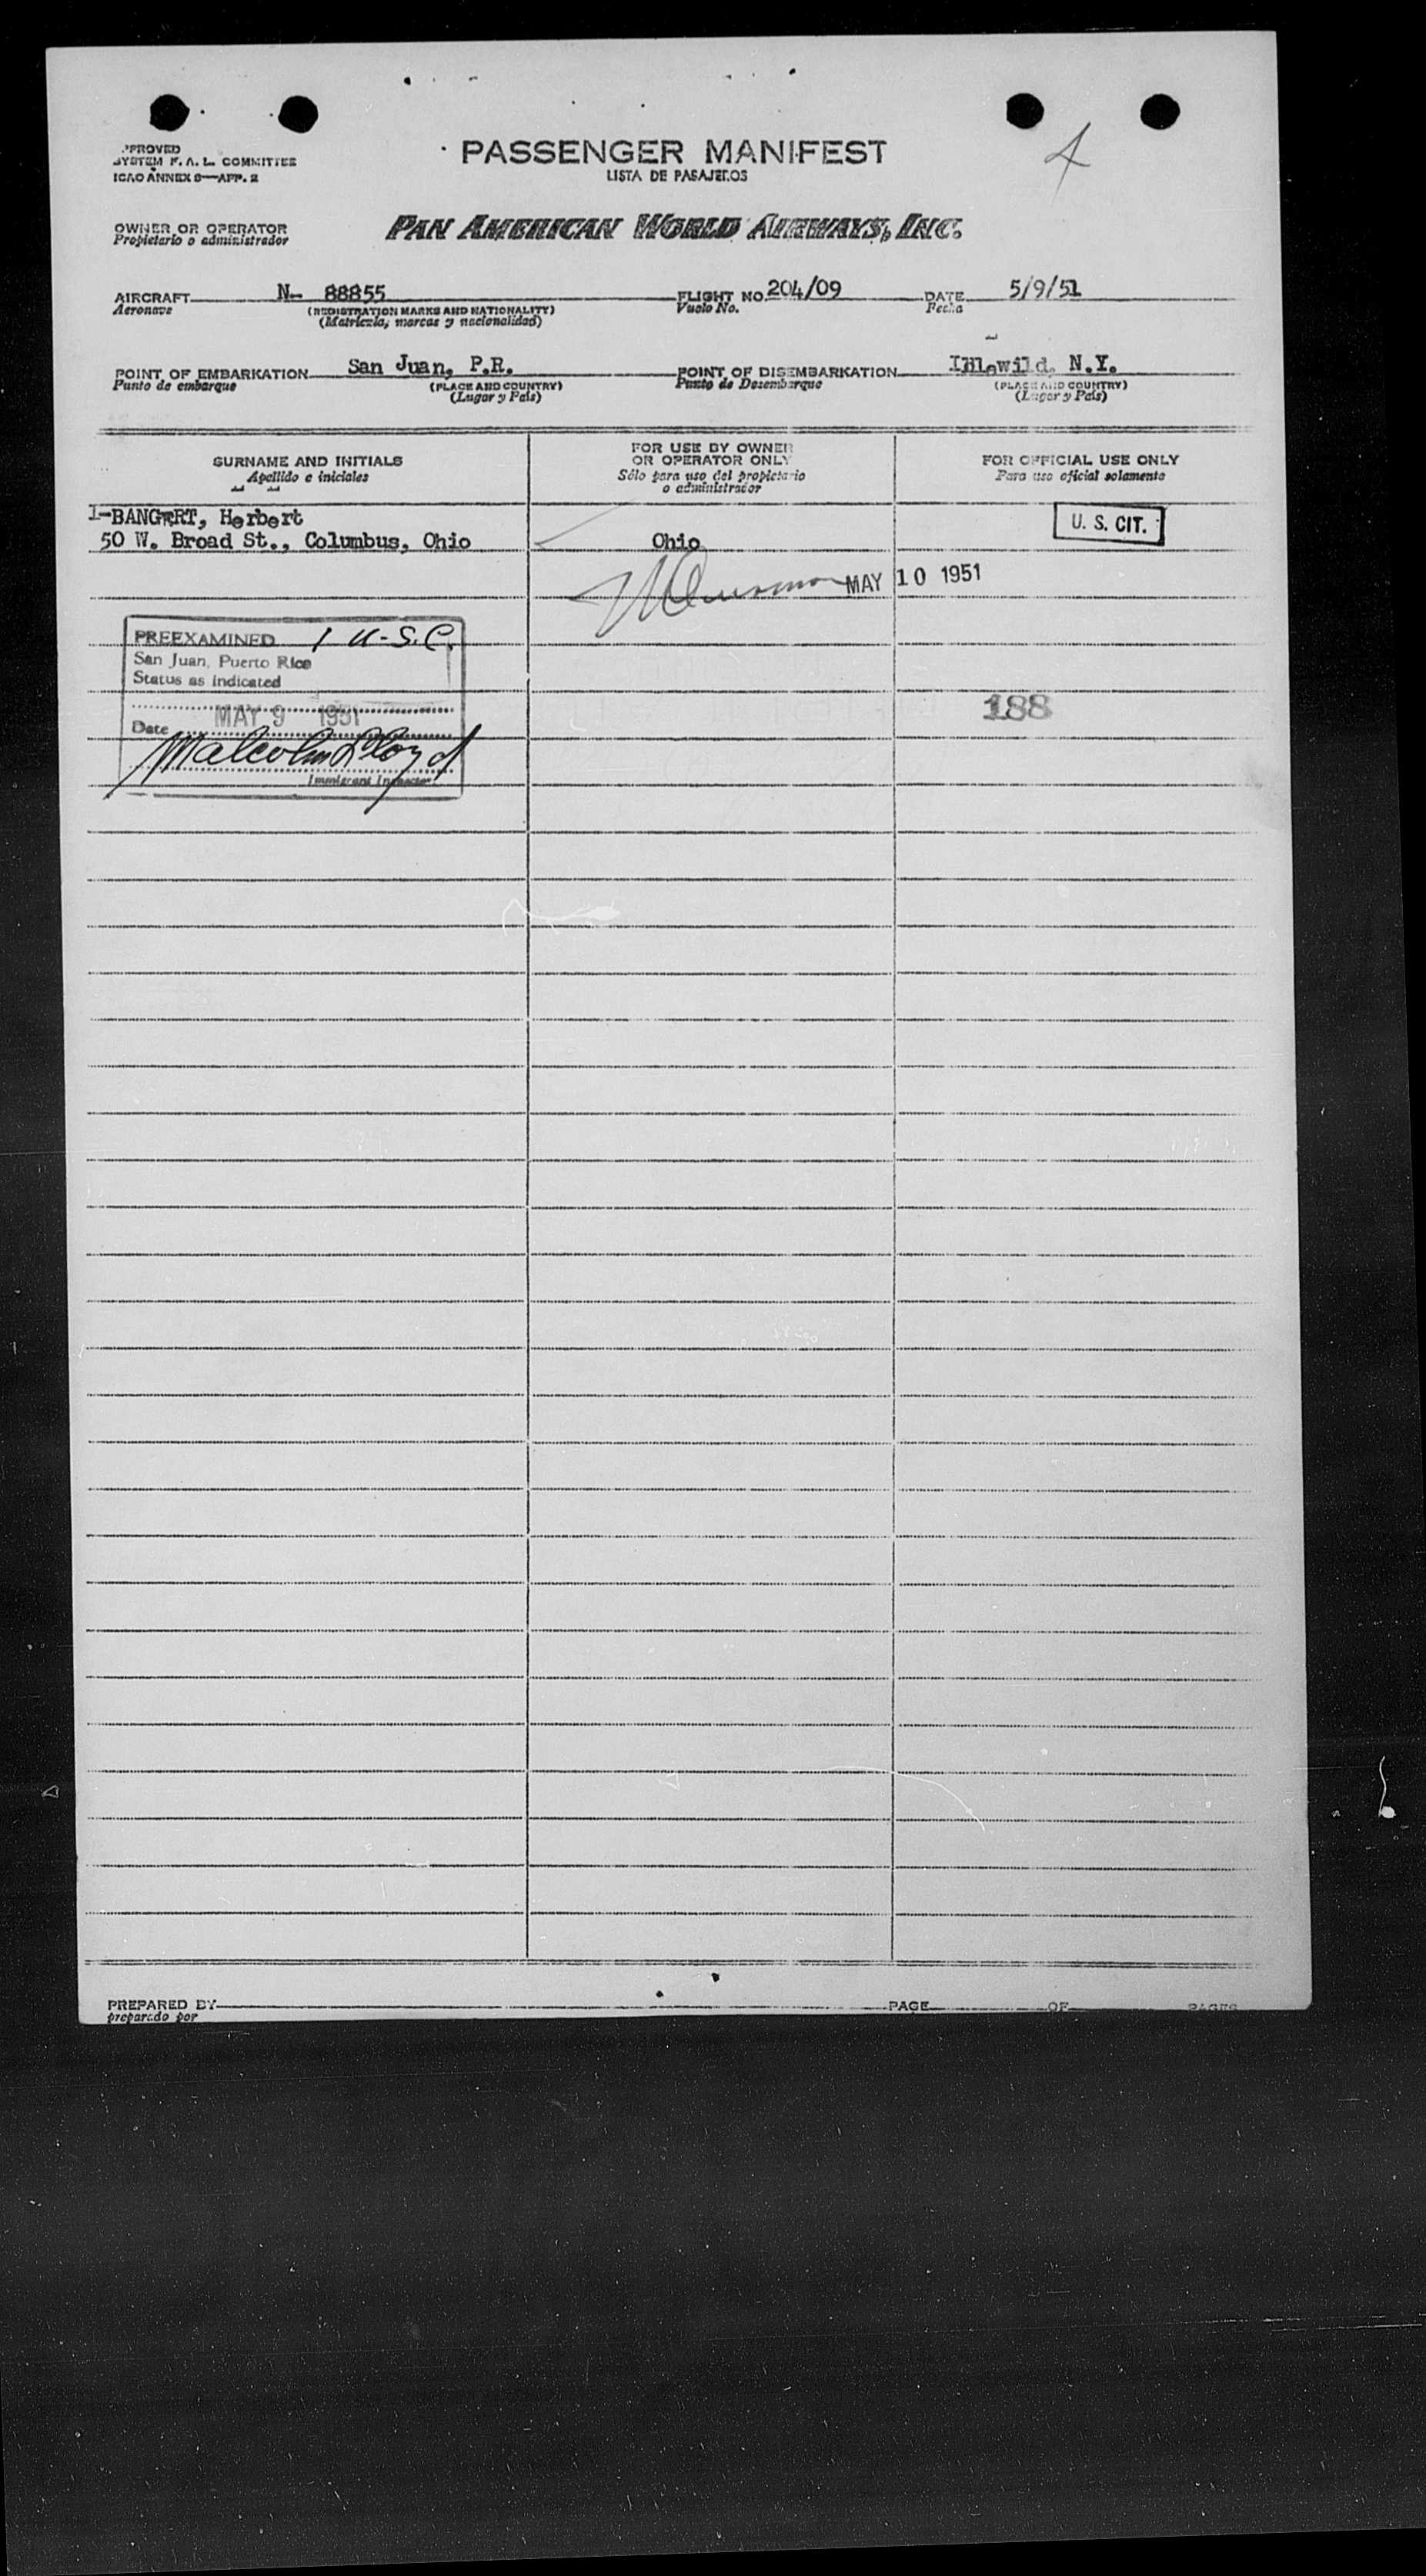 PASSENGER MANIFEST
LISTA DE PASAJEROS
4
SYSTEM F. A. L. COMMITTEE
ICAO ANNEX 9—APP. 2
OWNER OR OPERATOR
Propietario o administrador
PAN AMERICAN WORLD AIRWAYS, INC.
AIRCRAFT N- 88855 FLIGHT NO. 204/09 DATE 5/9/51
Aeronave (REGISTRATION MARKS AND NATIONALITY) Vuelo No. Fecha
(Matrícula, marcas y nacionalidad)
POINT OF EMBARKATION San Juan, P.R. POINT OF DISEMBARKATION Idlewild, N.Y.
Punto de embarque (PLACE AND COUNTRY) Punto de Desembarque (PLACE AND COUNTRY)
(Lugar y País) (Lugar y País)
SURNAME AND INITIALS
Apellido e iniciales
FOR USE BY OWNER
OR OPERATOR ONLY
Sólo para uso del propietario
o administrador
FOR OFFICIAL USE ONLY
Para uso oficial solamente
1-BANGERT, Herbert
50 W. Broad St., Columbus, Ohio Ohio
U. S. CIT.
MAY 10 1951
PREEXAMINED 1 U-S.C.
San Juan, Puerto Rico
Status as indicated
Date MAY 9 1951
Malcolm Lloyd
Immigrant Inspector
188
PREPARED BY PAGE OF PAGES
preparado por